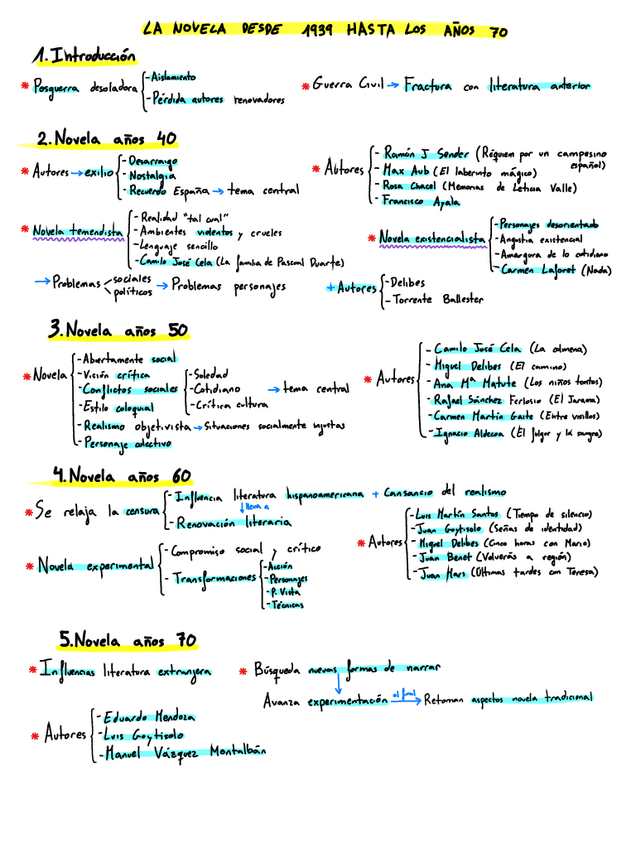 LA NOVELA DESDE 1939 HASTA LOS AÑOS 70
1. Introducción
* Posguerra desoladora
- Aislamiento
- Pérdida autores renovadores
* Guerra Civil → Fractura con literatura anterior
2. Novela años 40
* Autores → exilio
- Desarraigo
- Nostalgia
- Recuerdo España → tema central
* Autores
- Ramón J Sender (Réquiem por un campesino español)
- Max Aub (El laberinto mágico)
- Rosa Chacel (Memorias de Leticia Valle)
- Francisco Ayala
* Novela temendista
- Realidad "tal cual"
- Ambientes violentos y crueles
- Lenguaje sencillo
- Camilo José Cela (La familia de Pascual Duarte)
* Novela existencialista
- Personajes desorientado
- Angustia existencial
- Amargura de lo cotidiano
- Carmen Laforet (Nada)
→ Problemas sociales políticos → Problemas personajes
+ Autores
- Delibes
- Torrente Ballester
3. Novela años 50
* Novela
- Abertamente social
- Visión crítica
- Conflictos sociales
- Estilo coloquial
- Soledad
- Cotidiano
- Crítica cultura
→ tema central
- Realismo objetivista → Situaciones socialmente injustas
- Personaje colectivo
* Autores
- Camilo José Cela (La colmena)
- Miguel Delibes (El camino)
- Ana Mª Matute (Los niños tontos)
- Rafael Sánchez Ferlosio (El Jarama)
- Carmen Martín Gaite (Entre visillos)
- Ignacio Aldecoa (El fulgor y la sangre)
4. Novela años 60
* Se relaja la censura
- Influencia literatura hispanoamericana + Cansancio del realismo
↓ lleva a
- Renovación literaria
* Autores
- Luis Martín Santos (Tiempo de silencio)
- Juan Goytisolo (Señas de identidad)
- Miguel Delibes (Cinco horas con Mario)
- Juan Benet (Volverás a región)
- Juan Mars (Últimas tardes con Teresa)
* Novela experimental
- Compromiso social y crítico
- Transformaciones
- Acción
- Personajes
- P. Vista
- Técnicas
5. Novela años 70
* Influencias literatura extranjera
* Búsqueda nuevas formas de narrar
↓
Avanza experimentación al final → Retoman aspectos novela tradicional
* Autores
- Eduardo Mendoza
- Luis Goytisolo
- Manuel Vázquez Montalbán